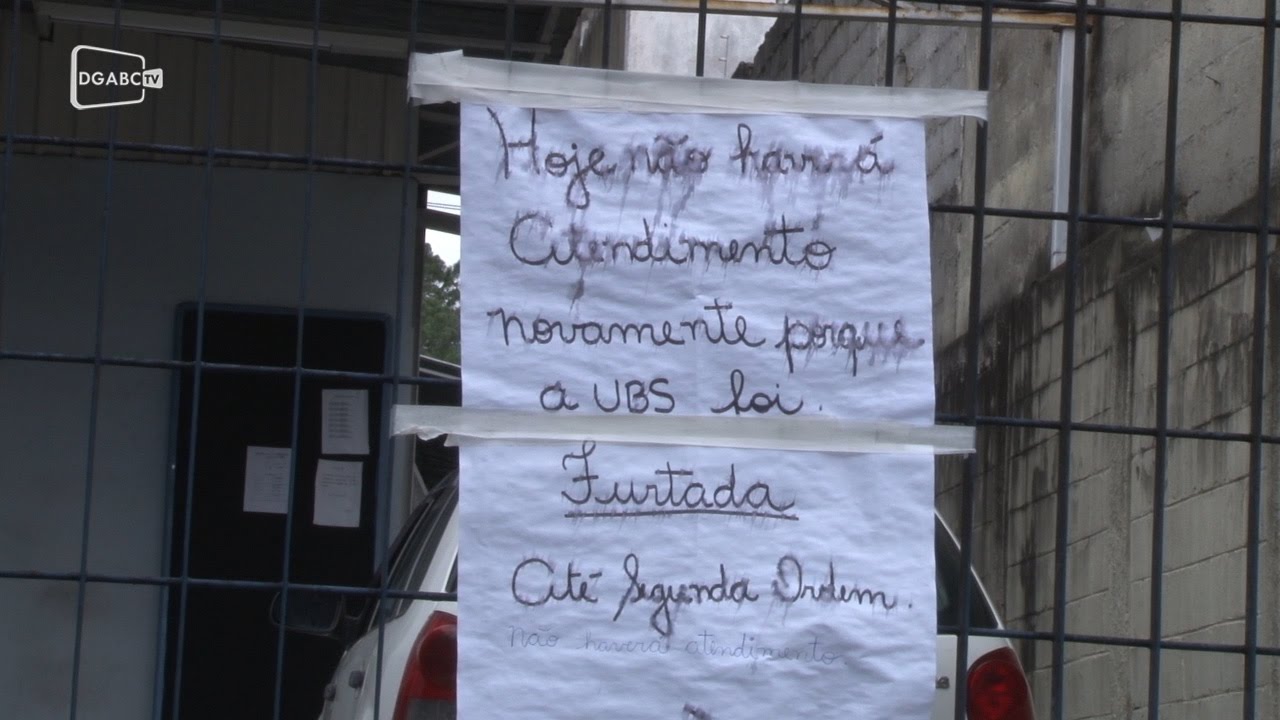 DGABC TV
Hoje não havrá
Atendimento
novamente porque
a UBS foi.
Furtada
Até Segunda Ordem.
Não haverá atendimento.